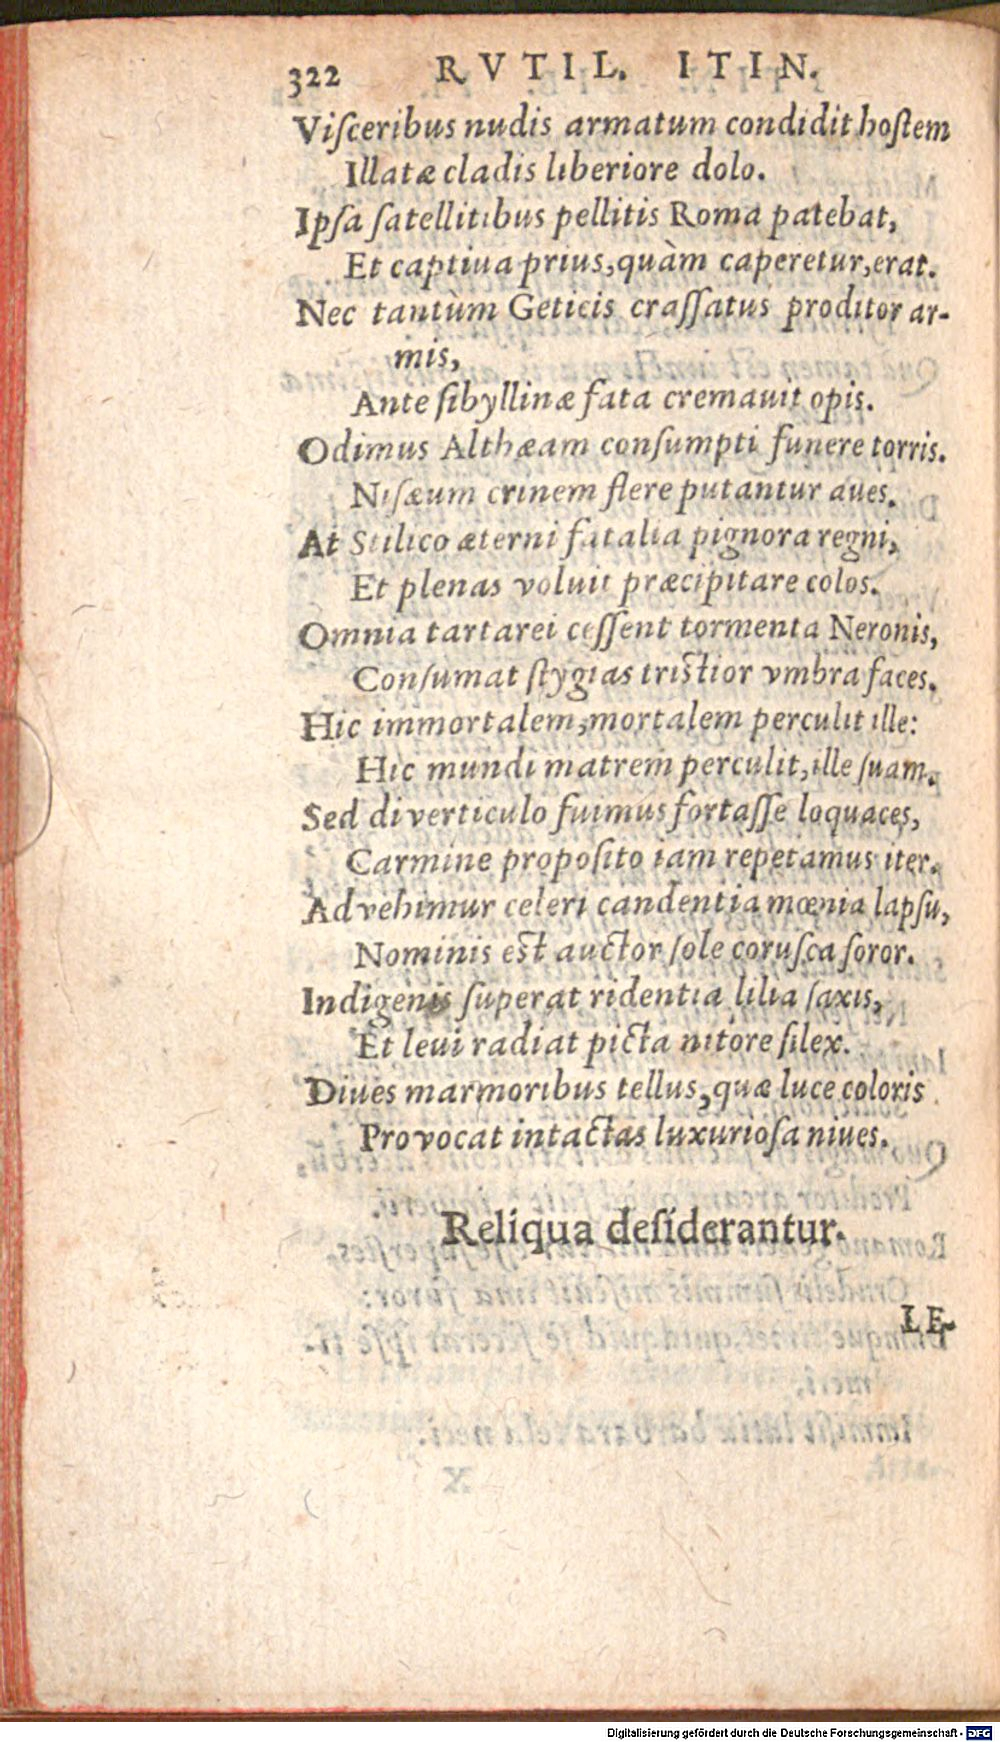 322 RVTIL. ITIN.
Viſceribus nudis armatum condidit hoſtem
Illatæ cladis liberiore dolo.
Ipſa ſatellitibus pellitis Roma patebat,
Et captiua prius, quàm caperetur, erat.
Nec tantùm Geticis craſſatus proditor ar-
mis,
Ante ſibyllinæ fata cremauit opis.
Odimus Althæam conſumpti funere torris.
Niſæum crinem flere putantur aues.
At Stilico æterni fatalia pignora regni,
Et plenas voluit præcipitare colos.
Omnia tartarei ceſſent tormenta Neronis,
Conſumat ſtygias triſtior vmbra faces.
Hic immortalem, mortalem perculit ille:
Hic mundi matrem perculit, ille ſuam.
Sed diverticulo fuimus fortaſſe loquaces,
Carmine propoſito iam repetamus iter.
Advehimur celeri candentia mœnia lapſu,
Nominis eſt auctor ſole coruſca ſoror.
Indigenis ſuperat ridentia lilia ſaxis,
Et leui radiat picta nitore ſilex.
Diues marmoribus tellus, quæ luce coloris
Provocat intactas luxurioſa niues.
Reliqua deſiderantur.
LE-
Digitalisierung gefördert durch die Deutsche Forschungsgemeinschaft - DFG